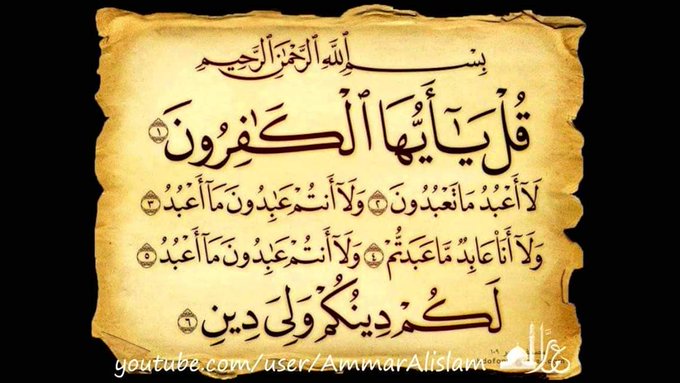 بِسْمِ ٱللَّهِ ٱلرَّحْمَٰنِ ٱلرَّحِيمِ
قُلْ يَٰٓأَيُّهَا ٱلْكَٰفِرُونَ ١
لَآ أَعْبُدُ مَا تَعْبُدُونَ ٢ وَلَآ أَنتُمْ عَٰبِدُونَ مَآ أَعْبُدُ ٣
وَلَآ أَنَا۠ عَابِدٌ مَّا عَبَدتُّمْ ٤ وَلَآ أَنتُمْ عَٰبِدُونَ مَآ أَعْبُدُ ٥
لَكُمْ دِينُكُمْ وَلِىَ دِينِ ٦
youtube.com/user/AmmarAlislam